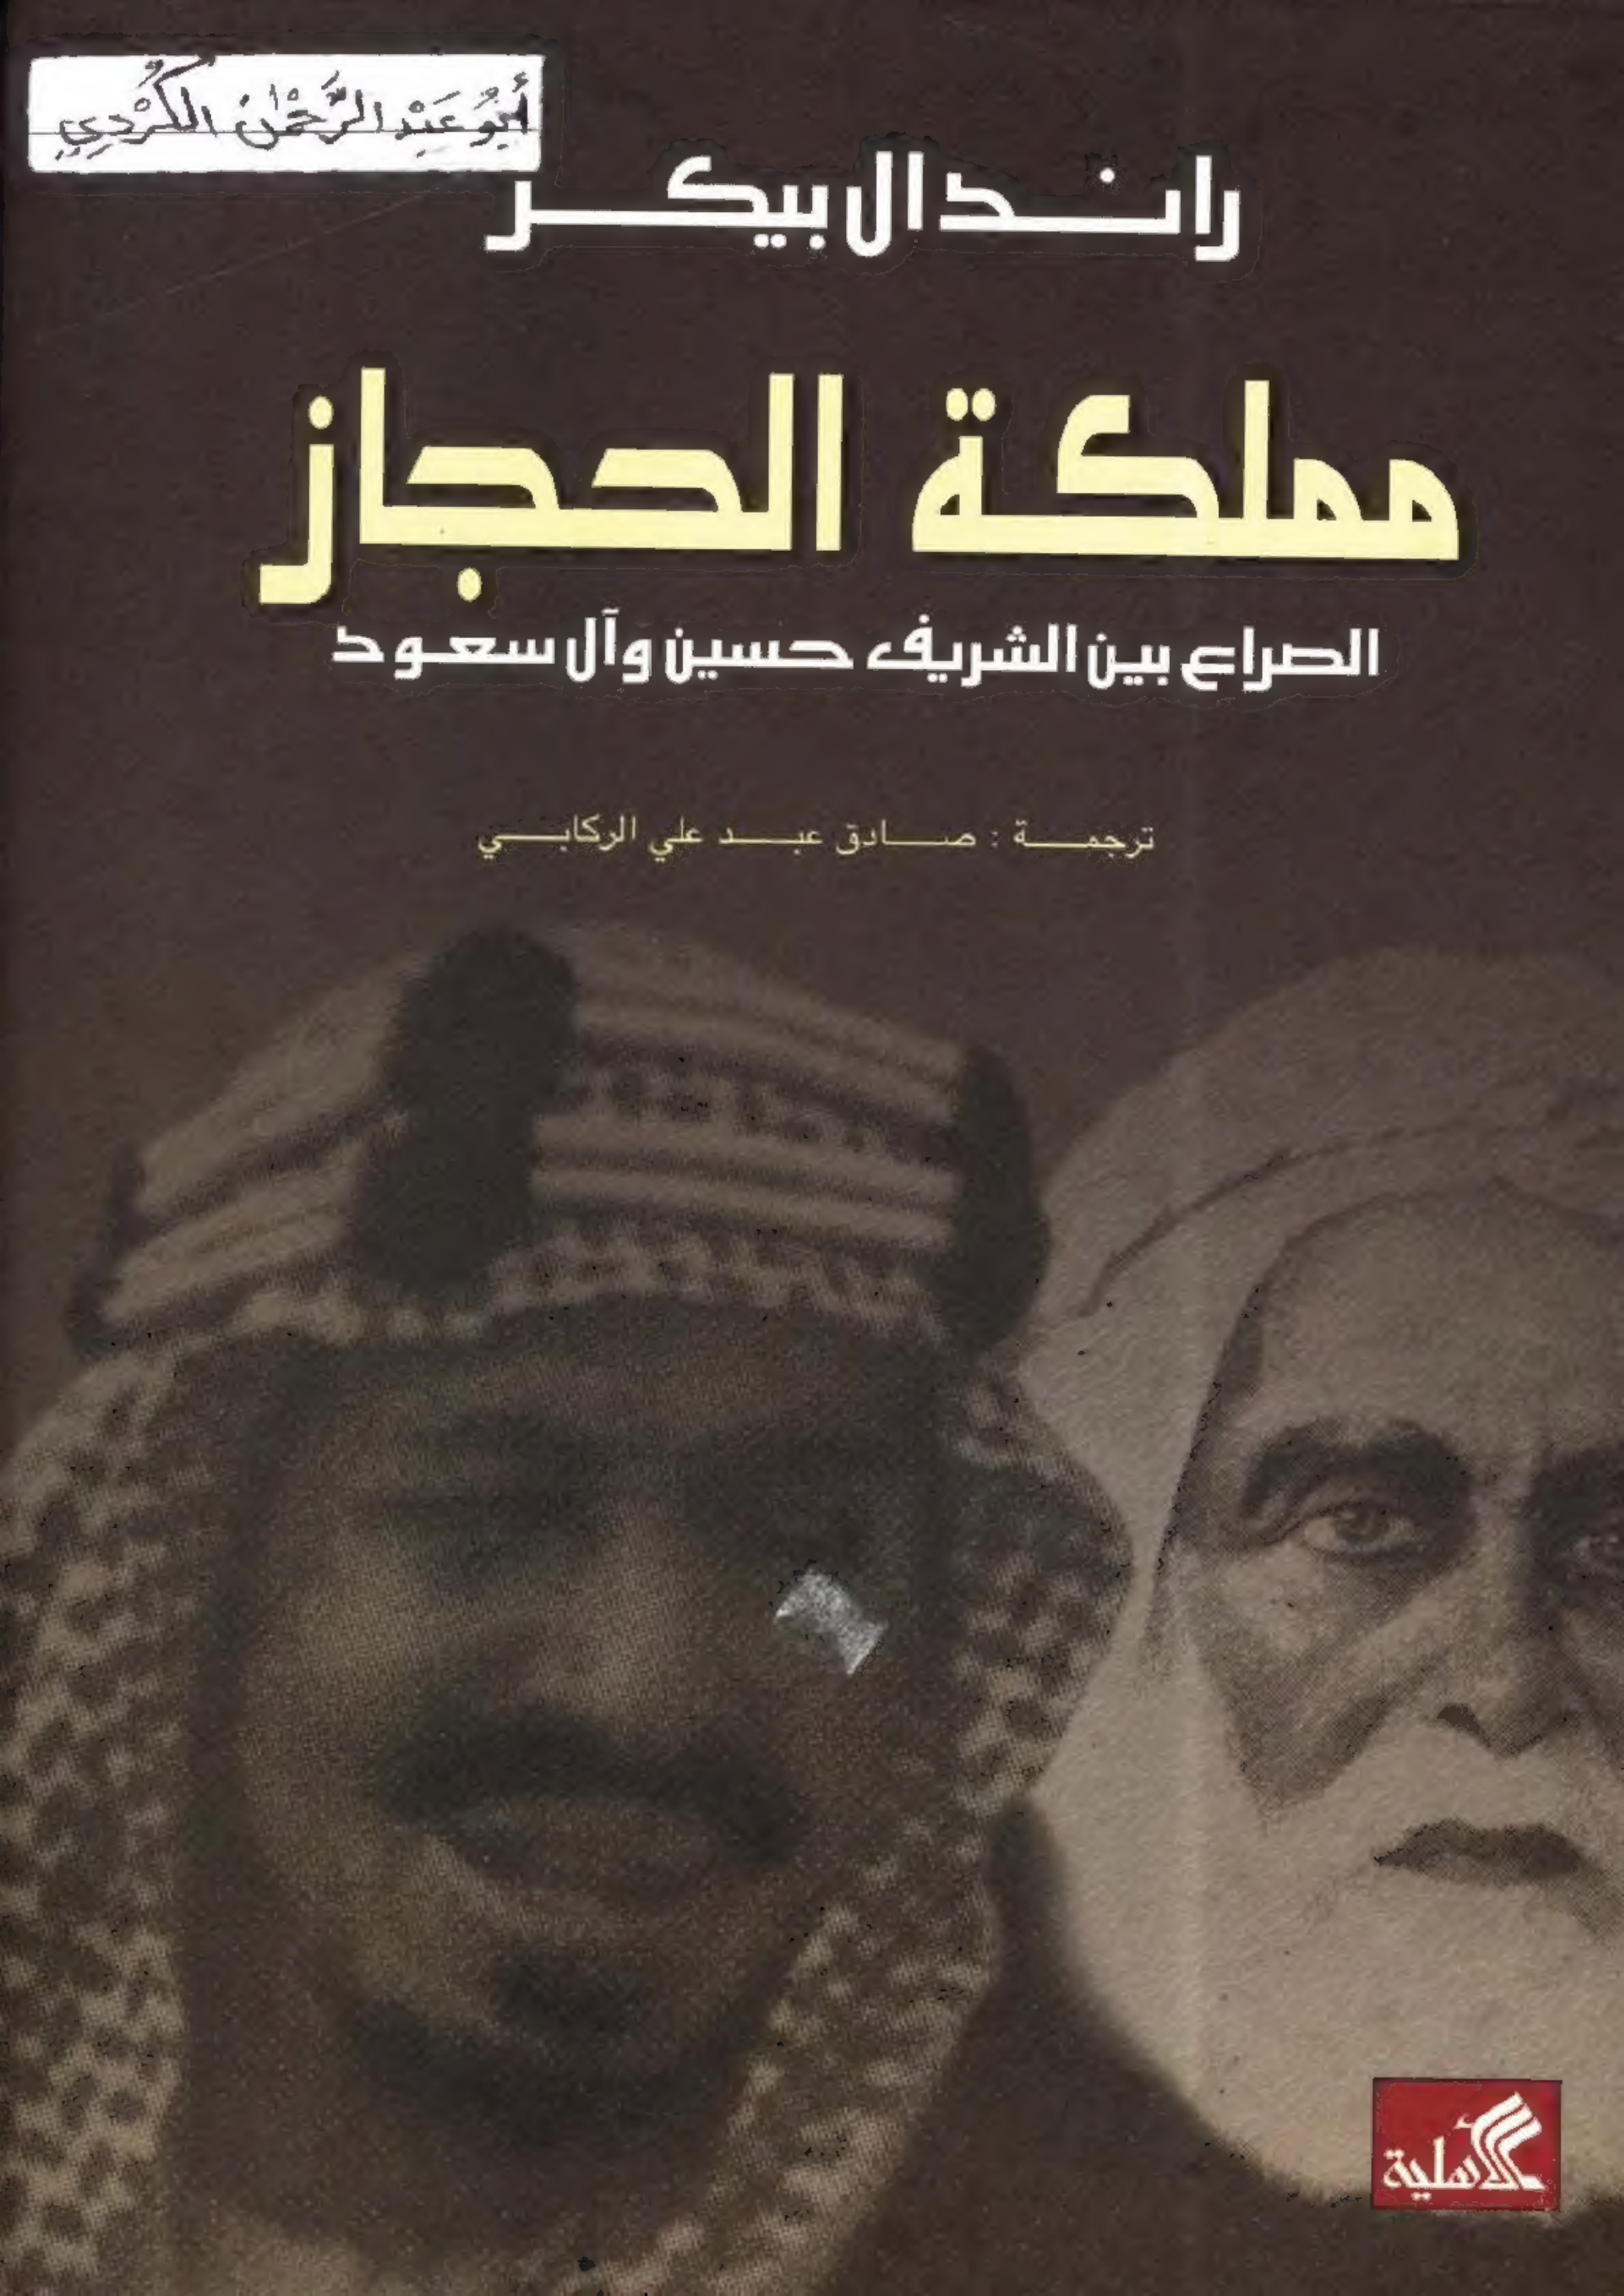 أَبُو عَبْدِ الرَّحْمٰن الكُرْدِي
راندال بيكر
مملكة الحجاز
الصراع بين الشريف حسين وآل سعود
ترجمة : صادق عبد علي الركابي
الأهلية